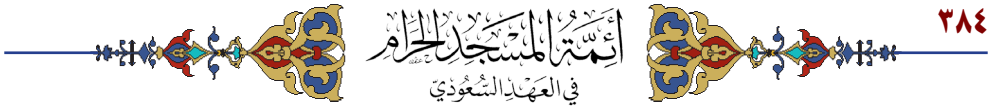 ٣٨٤
أَئِمَّةُ المَسْجِدِ الحَرَامِ
فِي العَهْدِ السُّعُودِيّ